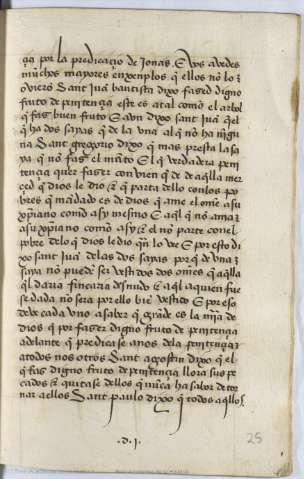 çia por la predicaçio de Jonas. E vos avedes
muchos mayores enxenplos q̃ ellos nõ los
ovierõ Sant Juã bautista dixo fased digno
fruto de penitençia este es atal como el arbol
q̃ fas buen fruto E avn dixo sant Juã q̃ el
q̃ ha dos sayas q̃ de la vna al q̃ nõ ha nigu
na Sant gregorio dixo q̃ mas presta la sa
ya q̃ nõ fas el mãto E el q̃ verdadera peni
tençia quier faser convien q̃ de de aq̃lla mer
çed q̃ dios le dio & q̃ parta dello con los po
bres q̃ mãdado es de dios q̃ ame el ome a su
xp̃iano como a sy mesmo E aq̃l q̃ nõ ama a
su xp̃iano como a sy & el nõ parte con el
pobre delo q̃ dios le dio qñ lo vee E por esto di
xo sant Juã delas dos sayas por q̃ de vna
saya nõ puede ser vestidos dos omẽs q̃ aq̃lla
q̃l daria fincaria desnudo & aq̃l a quien fue
se dada nõ sera por ello biẽ vestido E por eso
deve cada vno a saber q̃ grãde es la mĩa de
dios q̃ por faser digno fruto de penitençia
adelante q̃ predicase anos dela penitençia
atodos nos otros Sant agostin dixo q̃ el
q̃ fas digno fruto de penitençia llora sus pe
cados & quitase dellos q̃ nũca ha sabor de tor
nar a ellos Sant paulo dixo q̃ todos aq̃llos
.d.j.
25